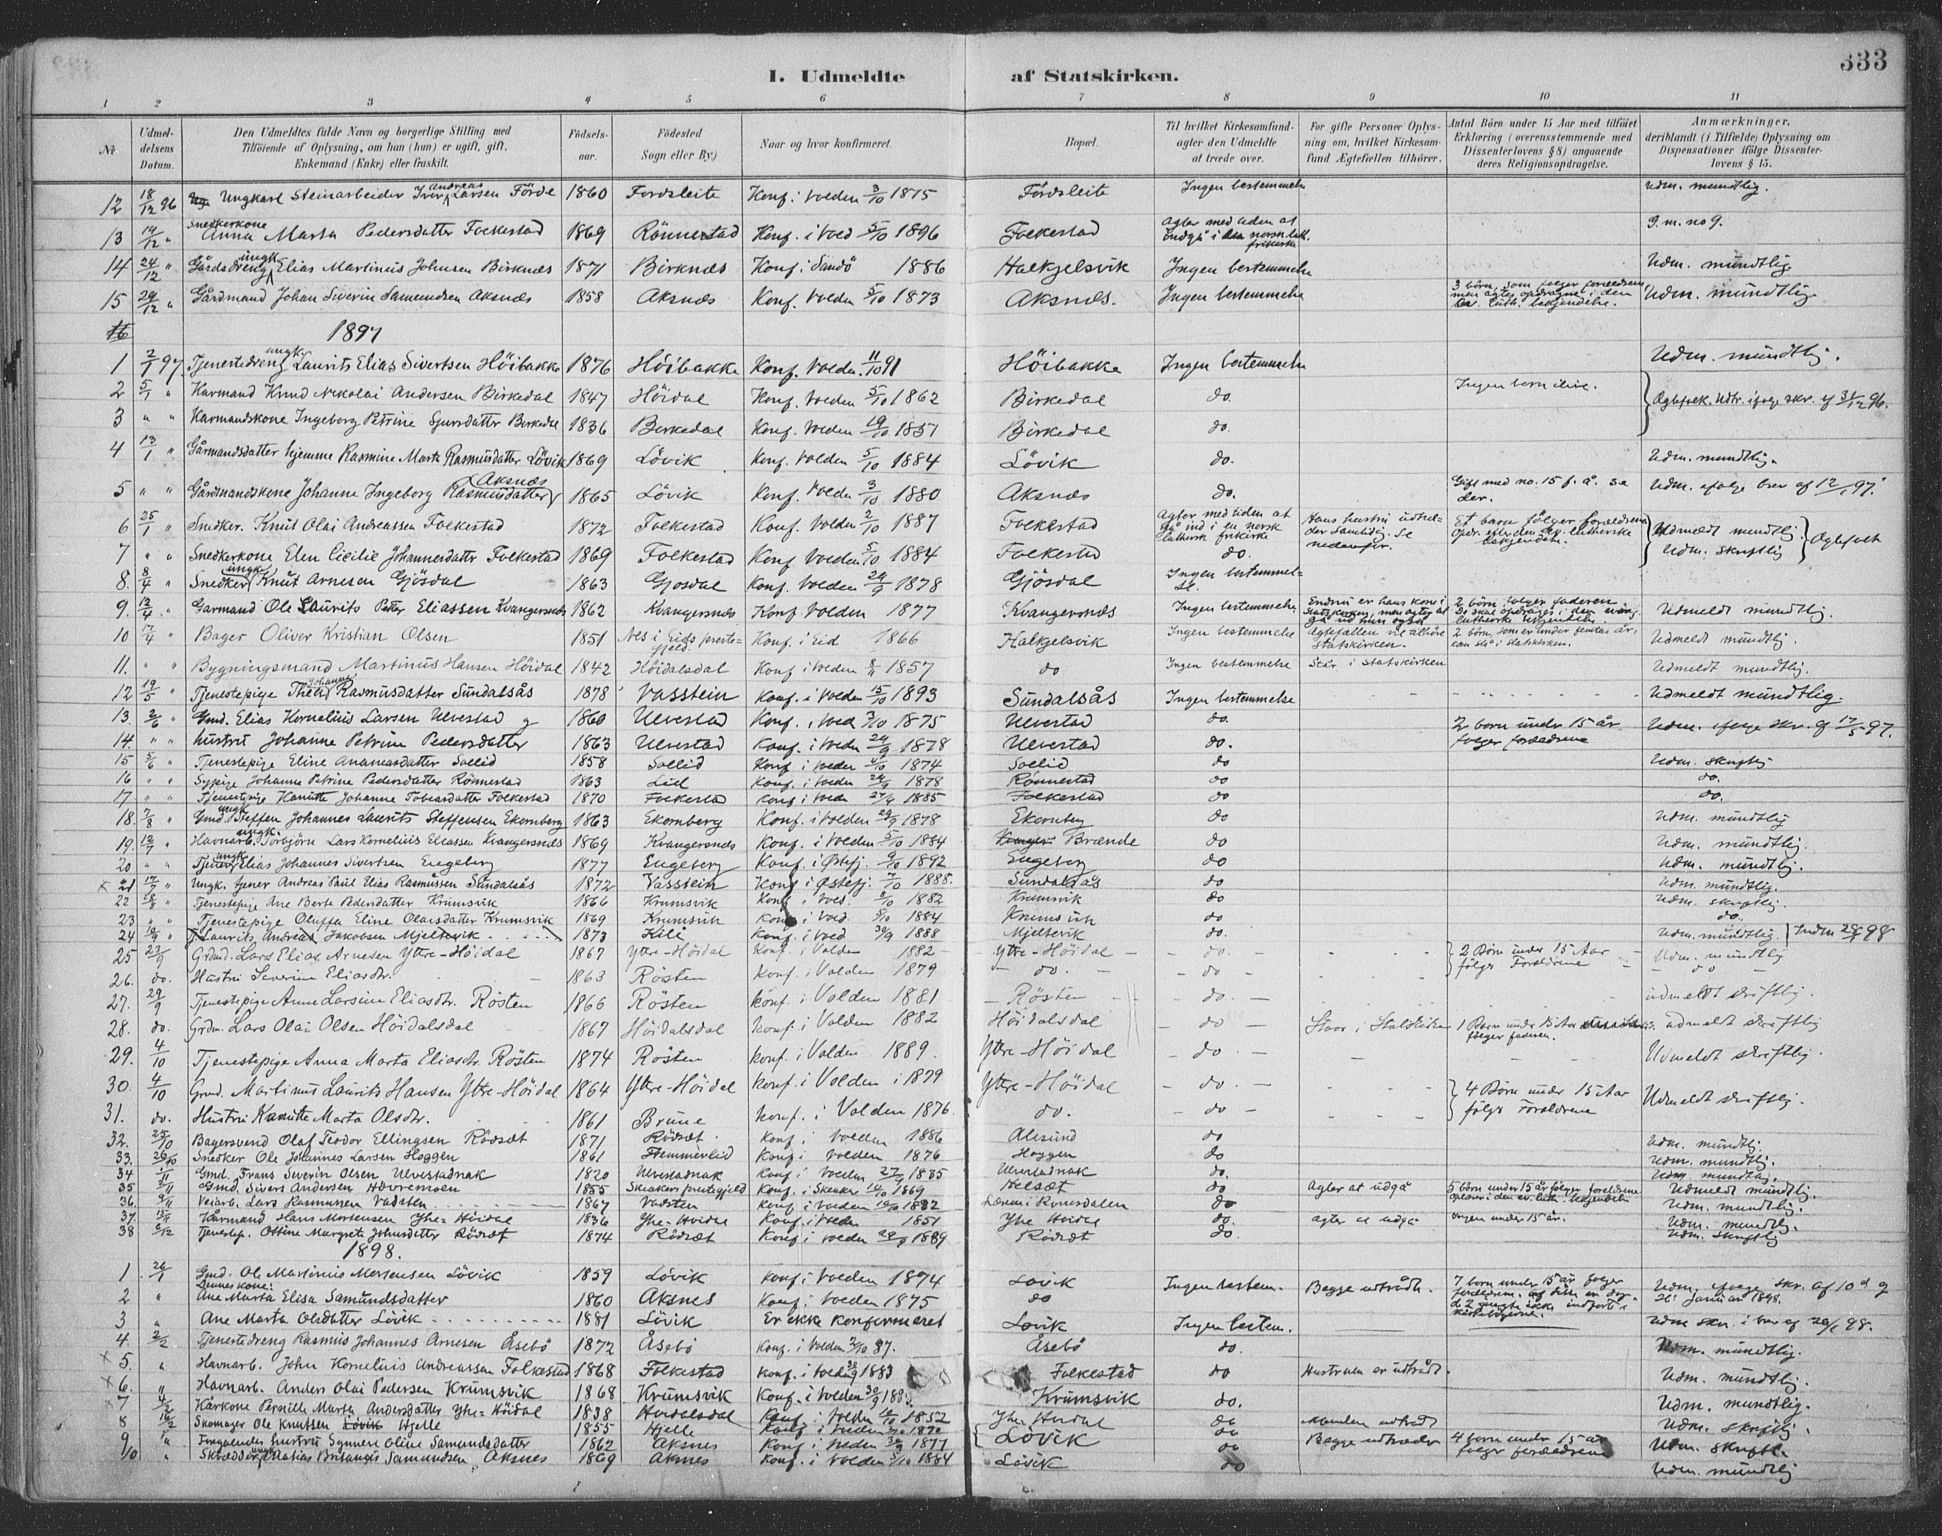 333
I. Udmeldte af Statskirken.
1 2 3 4 5 6 7 8 9 10 11
№ | Udmeldelsens Datum. | Den Udmeldtes fulde Navn og borgerlige Stilling med Tilföiende af Oplysning, om han (hun) er ugift, gift, Enkemand (Enke) eller fraskilt. | Födselsaar. | Födested Sogn eller By.) | Naar og hvor konfirmeret. | Bopæl. | Til hvilket Kirkesamfund agter den Udmeldte at træde over. | For gifte Personer Oplysning om, hvilket Kirkesamfund Ægtefællen tilhörer. | Antal Börn under 15 Aar med tilföiet Erklæring (overensstemmende med Dissenterlovens § 8) angaaende deres Religionsopdragelse. | Anmærkninger, deriblandt (i Tilfælde) Oplysning om Dispensationer ifölge Dissenterlovens § 15.
12 18/12 96 Ungkarl Steinarbeider Iver Andreas Larsen Förde 1860 Fordsleite Konf. i Volden 3/10 1875 Fördsleite Ingen bestemmelse Udm. mundtlig.
13 19/12 " Snedkerkone Anna Marta Pedersdatter Folkestad 1869 Rönnestad Konf. i Vold 5/10 1896 Folkestad Agter med tiden at indgå i den norsk luth. frikirke g.m. no 9.
14 24/12 " Gårdsdreng ungk. Elias Martinus Johnsen Birknes 1871 Birknes Konf. i Sandö 1886 Halkjelsvik Ingen bestemmelse Udm. mundtlig
15 29/12 " Gårdmand Johan Siverin Samundsen Aksnæs 1858 Aksnæs Konf. Volden 5/10 1873 Aksnæs. Ingen bestemmelse 3 börn, som fölger forældrene, men agtes opdragne i den ev. luth. bekjendelse. Udm. mundtlig
16
1897
1 2/1 97 Tjenestedreng ungk. Laurits Elias Sivertsen Höibakke 1876 Höibakke Konf. Volden. 11/10 91 Höibakke Ingen bestemmelse Udm. mundtlig.
2 5/1 " Karmand Knud Nikolai Andersen Birkedal 1847 Höidal Konf. Volden 5/10 1862 Birkedal do. Ingen börn
3 " " Karmandskone Ingeborg Petrine Sjursdatter Birkedal 1836 Birkedal Konf. Volden 19/10 1851 Birkedal do. Ægtefolk. Udtr. ifölge skr. af 31/12 96.
4 13/1 " Gårmandsdatter hjemme Rasmine Marta Rasmusdatter Lövik 1869 Lövik Konf. Volden 5/10 1884 Lövik do. Udm. mundtlig.
5 " " Gårdmandskone Johanne Ingeborg Rasmusdatter Aksnæs 1865 Lövik Konf. Volden 3/10 1880 Aksnæs do. Gift med no. 15 f. å. se der. Udm. ifölge brev af 12/1 97.
6 25/1 " Snedker. Knut Olai Andreassen Folkestad 1872 Folkestad Konf. Volden 2/10 1887 Folkestad Agter med tiden at gå ind i en norsk luthersk frikirke Hans hustru udtræder samtidig. Se nedenfor. Et barn fölger forældrene Opdr. efter den ev. lutherske bekjendelse. Udmeldt mundtlig.
7 " " Snedkerkone Elen Cicilie Johannesdatter Folkestad 1869 Folkestad Konf Volden 5/10 1884 Folkestad do. Udm. skriftlig Ægtefolk
8 8/4 " Snedker ungk. Knut Arnesen Gjösdal 1863 Gjosdal Konf. Volden 29/9 1878 Gjösdal Ingen bestemmelse.
9. 12/4 " Garmand Ole Laurits Petter Eliassen Kvangersnes 1862 Kvangersnes Konf Volden 1877 Kvangersnes Ingen bestemmelse Endnu er hans kone i statskirken, men agter at gå ud hun også 2 börn fölger faderen. De skal opdrages i den evang. lutherske bekjendelse. Udmeldt mundtlig.
10 14/4 " Bager Oliver Kristian Olsen 1851 Nes i Eids prestegjeld Konf. i Eid 1866 Halkjelsvik Ingen bestemmelse Ægtefællen vil tilhöre Statskirken. 2 börn, som er under femten år, kan stå i statskirken. Udmeldt mundtlig.
11. " " Bygningsmand Martinus Hansen Höidal 1842 Höidalsdal Konf i Volden 8/11 1857 do Ingen bestemmelse Står i Statskirken Udmeldt mundtlig.
12 19/5 " Tjenestepige Thea Johanne Rasmusdatter Sundalsås 1878 Vasstein Konf. i Volden 15/10 1893 Sundalsås Ingen bestemmelse Udmeldt mundtlig.
13. 2/6 " Gmd. Elias Kornelius Larsen Ulvestad g 1860 Ulvestad Konf. i Vold 3/10 1875 Ulvestad do. 2 born under 15 år folger forældrene Udm. ifölge skr. af 17/5 97.
14. " " hustru Johanne Petrine Pedersdatter 1863 Ulvestad Konf. i Volden 29/9 1878 Ulvestad do.
15 5/6 " Tjenestepige Eline Ananiasdatter Sollid 1858 Sollid Konf i Volden 1874 Sollid do Udm. skriftlig
16 " " Sypige Johanne Petrine Pedersdatter Rönnestad 1863 Lid Konf. i Volden 29/9 1878 Rönnestad do do.
17 " " Tjenestpige Hanitte Johanne Tobiasdatter Folkestad 1870 Folkestad Konf i Volden 27/9 1885 Folkestad do do.
18. 7/8 " Gmd ungk. Steffen Johannes Laurits Steffensen Ekornberg 1863 Ekornberg Konf. i Volden 29/9 1878 Ekornberg do Udm. mundtlig
19. 12/7 " Havnarb. ungk. Torbjörn Lars Kornelius Eliassen Kvangersnes 1869 Kvangersnes Konf. i Volden 5/10 1884 Brænde do Udm. mundtlig.
20 " " Tjdreng ungk. Elias Johannes Sivertsen Engeberg 1877 Engeberg Konf. i Østefj. 9/10 1892 Engeberg do Udm. mundtlig.
x 21 17/7 " Ungk. Jener Andreas Paul Elias Rasmussen Sundalsås 1872 Vasstein Konf i Østefj. 7/10 1888. Sundalsås do Udm. mundtlig.
22 28/8 " Tjenestepige Ane Berte Pedersdatter Krumsvik 1866 Krumsvik Konf i Vold. 8/10 1882 Krumsvik do Udm. skriftlig
23 " " Tjenestepige Oluffa Eline Olausdatter Krumsvik 1869 Krumsvik Konf i Vold. 5/10 1884 Krumsvik do do.
24 10/9 " Laurits Andreas Jakobsen Mjeltevik 1873 Kile Konf. i Vold 30/9 1888 Mjeltevik do. Udm. mundtlig Indm 98
25 23/9 Grdmd. Lars Elias Arnesen Yttre-Höidal 1867 Yttre-Höidal Konf. i Volden 1882 Yttre-Höidal do. 2 Börn under 15 Aar fölge Forældrene Udm. mundtlig
26. do. Hustri Severine Eliasdtr. 1863 Rösten Konf. i Volden 1879 do. do do
27. 29/9 Tjenestepige Anne Larsine Eliasdtr. Rösten 1866 Rösten konf. i Volden 1881 Rösten do. udmeldt skriftlig.
28. do. Grdm. Lars Olai Olsen Höidalsdal 1867 Höidalsdal konf. i Volden 1882 Höidalsdal do Staar i Statskirken 1 Barn under 15 Aar fölger faderen. udmeldt skriftlig
29. 4/10 Tjenestepige Anna Marta Eliasdtr. Rösten 1874 Rösten konf. i Volden 1889. Yttre-Höidal do Udmeldt skriftlig.
30. 4/10 Grmd. Martinus Laurits Hansen Yttre-Höidal 1864 Yttre-Höidal konf. i Volden i 1879 Yttre-Höidal do. 4 Börn under 15 Aar fölge Forældrene Udmeldt skriftlig.
31. do. Hustri Kanutte Marta Olsdtr. 1861 Brune konf. i Volden 1876. do. do
32. 25/10 Bagersvend Olaf Teodor Ellingsen Rödsæt 1871 Rödsæt Konf. i Volden 1886 Alesund do Udm. mundtlig
33. 26/10 Snedker Ole Johannes Larsen Hoggen 1861 Stemmerlid Konf i Volden 1876 Hoggen do Udm. mundtlig.
34 1/11 Gmd. Frans Severin Olsen Ulvestadnak 1820 Ulvestadnak Konf i Volden 27/9 1835 Ulvestadnak do. Udm. mundtlig.
35 Gmd. Sivert Andersen Hovremoen 1855 præstegjeld Konf. i 10/10 1869 Helsæt do Agter at udgå 5 börn under 15 år fölger forældrene opdrar i den ev. luth. bekjendelse Udmeldt mundtlig.
36 9/11 Veiarb. Lars Rasmussen Vadsten 1867 Vadsten Konf. i Volden 1882 Læren i Romsdalen do Udm. mundtlig.
37. 15/11 Kårmand Hans Mortensen Yhe-Höidal 1836 Yhe-Hoidal Konf i Volden 1851 Yhe Hoidal do. agter at udgå Ingen under 15 år. Udm. mundtlig.
38 2/12 Tjenestep. Ottine Margrete Johnsdatter Rödsæt 1874 Rödsæt Konf i Volden 29/9 1889 Rödsæt do. Udm. skriftlig
1898.
1 26/1 Gmd. Ole Martinius Mortensen Lövik 1859 Lövik Konf i Volden 1874 Lovik Ingen bestem. Begge udtrådt. 7 born under 15 år folger forældrene. Udm. ifolge skr. af 10d g 26. Januar 1898.
2 " Dennes kone: Ane Marta Elisa Samundsdatter 1860 Aksnes Konf i Volden 1875 do
3 " Ane Marta Olsdatter Lövik 1881 Lövik Er ikke konfirmeret Lovik Ingen bestem. Udm skr. i brev af 26/1 98.
4. 2/2 Tjenestedreng Rasmus Johannes Arnesen Åsebö 1872 Åsebö Konf. i Volden 2/10 87. Åsebö do. Udm. mundtlig.
x 5. " Havnarb. John Kornelius Andreassen Folkestad 1868 Folkestad Konf. i Vold 30/9 1883 Folkestad do Hustruen er udtrådt. Udm. mundtlig.
x 6. " Havnarb. Anders Olai Pedersen Krumsvik 1868 Krumsvik Konf. i Volden 30/9 1883. Krumsvik do. Udm. mundtlig.
x 7 4/2 Kårkone Pernille Marta Andersdatter Yhe-Höidal 1838 Hoidalsdal Konf. i Volden 10/10 1852 Yhe Hoidal do Manden udtrådt Udm. skriftlig
8 16/2 Skomager Ole Knutsen Lövik Hjelle 1855 Hjelle Konf. i Volden 1870 Lövik do Begge udtræder 4 born under 15 år folger forældrene Udm. skriftl.
9 " Forgaaendes hustru Synnere Oline Samundsdatter 1862 Aksnes Konf i Volden 30/9 1877 do
10 " Skrædder ungk. Matias Bertangus Samundsen Aksnes 1869 Aksnes Konf. i Volden 5/10 1884 Lövik do Udm. mundtlig